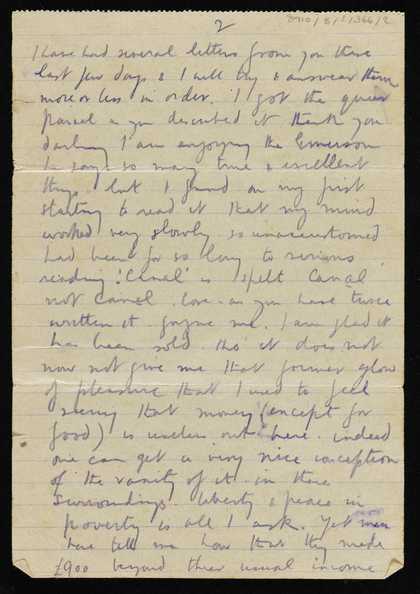 8710/8/1/366/2
2
I have had several letters from you these
last few days & I will try & answear them
more or less in order. I got the queer
parcel as you described it thank you
darling I am enjoying the Emerson
he says so many true & excellent
things but I found on my first
starting to read it that my mind
worked very slowly so unaccustomed
had been for so long to serious
reading! 'Canal' is spelt Canal
not Canel love as you have twice
written it forgive me. I am glad it
has been sold tho' it does not
now not give me that former glow
of pleasure that I used to feel
seeing that money (except for
food) is useless out here. indeed
one can get a very nice conception
of the vanity of it in these
surroundings. liberty & peace in
poverty is all I ask. Yet men
here tell me how that they made
£900 beyond their usual income